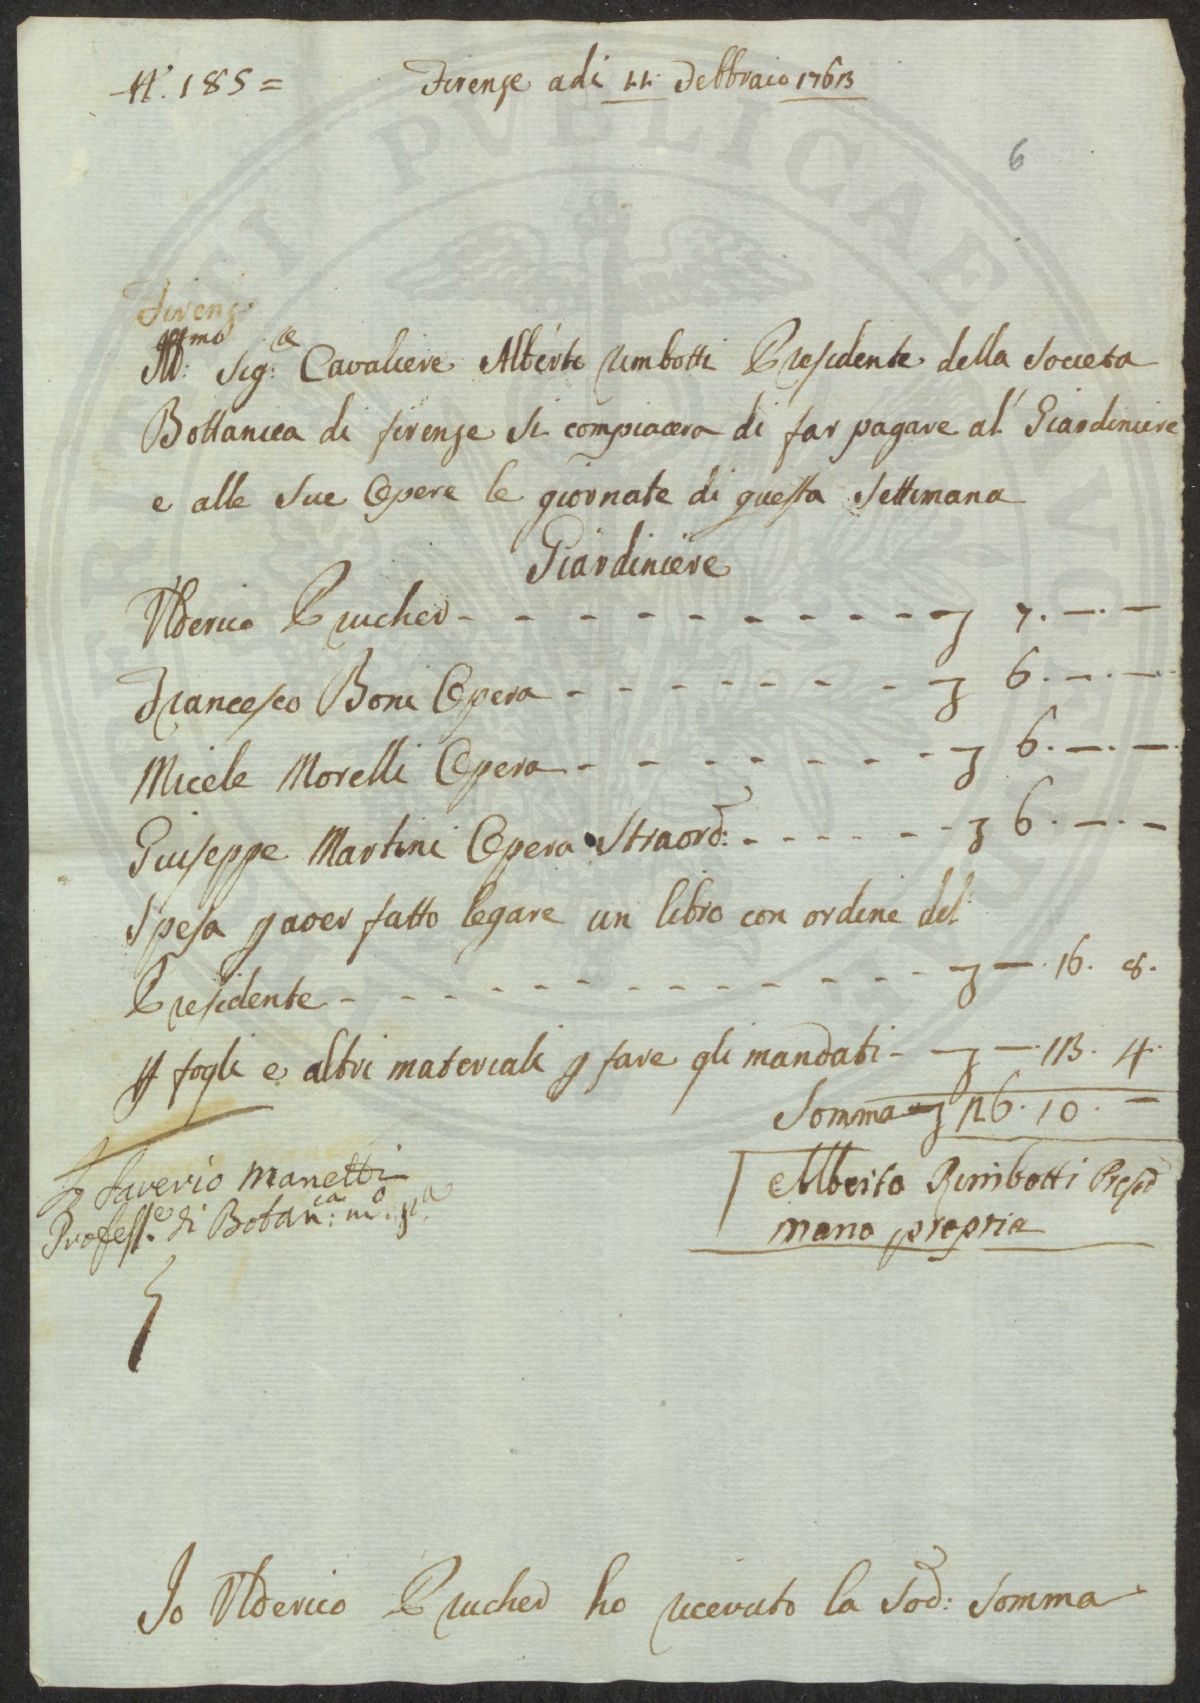 N.° 185 =
Firenze adi 11. Febbraio 1763
6
Firenz
Ill:mo Sig:re Cavaliere Alberto Rimbotti Presidente della Societa
Bottanica di firenze Si compiacera di far pagare al' Giardiniere
e alle Sue Opere le giornate di questa Settimana
Giardiniere
Ulderico Prucher - - - - - - - - - - 7. —. —
Francesco Boni Opera - - - - - - - 6. —. —
Micele Morelli Opera - - - - - - - 6. —. —
Giuseppe Martini Opera Straord: - - - - - - 6. —. —
Spesa p aver fatto legare un libro con ordine del
Presidente - - - - - - - - - - - —. 16. 8.
p fogli e altri materiali p fare gli mandati - —. 13. 4.
Somma 26. 10. —
Saverio Manetti
Profess:e di Botan:ca m:o p:a
Alberto Rimbotti Presid
mano propria
Io Ulderico Prucher ho ricevuto la Sod: Somma
PVBLICAE